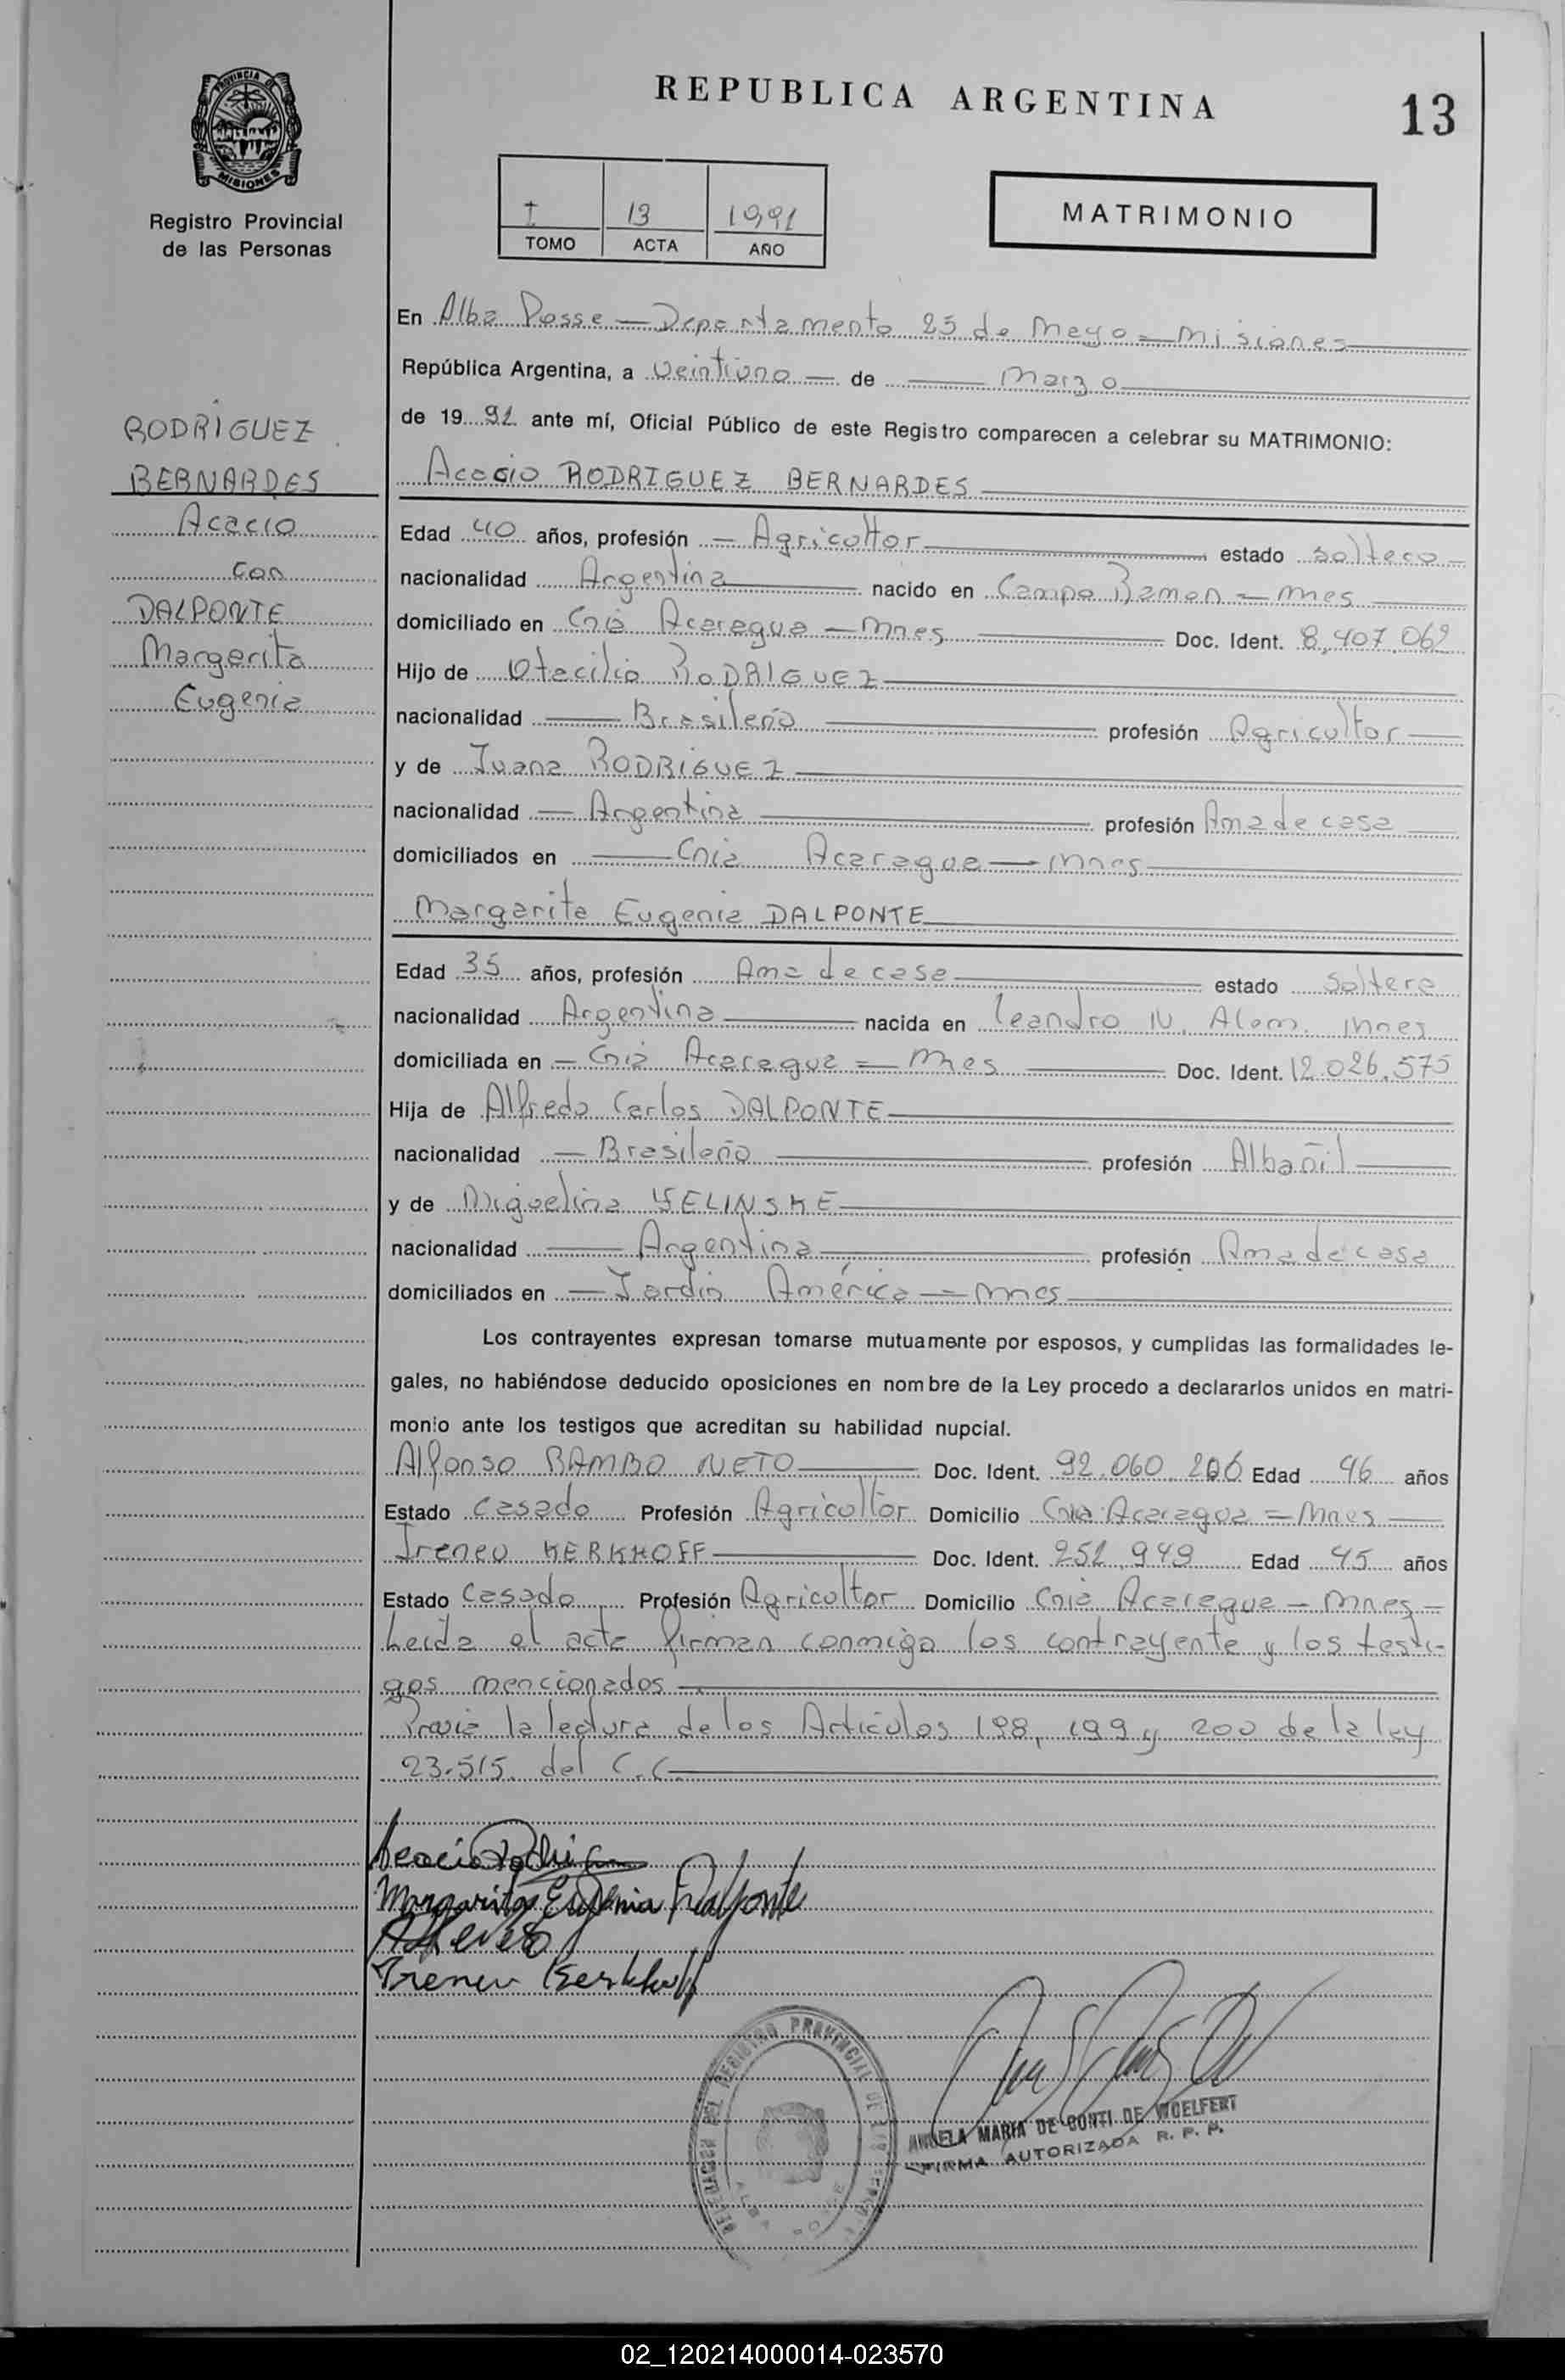 REPUBLICA ARGENTINA
13
PROVINCIA DE
MISIONES
Registro Provincial
de las Personas
I 13 1991
TOMO ACTA AÑO
MATRIMONIO
En Alba Posse — Departamento 25 de Mayo = Misiones
República Argentina, a Veintiuno — de — Marzo
de 19 91 ante mí, Oficial Público de este Registro comparecen a celebrar su MATRIMONIO:
RODRIGUEZ
BERNARDES
Acacio
con
DALPONTE
Margarita
Eugenia
Acacio RODRIGUEZ BERNARDES
Edad 40 años, profesión — Agricultor estado soltero —
nacionalidad Argentina nacido en Campo Ramon = Mnes
domiciliado en Cnia Acaragua — Mnes Doc. Ident. 8,407,062
Hijo de Otacilio RODRIGUEZ
nacionalidad — Brasileña profesión Agricultor
y de Juana RODRIGUEZ
nacionalidad — Argentina profesión Ama de casa
domiciliados en — Cnia Acaragua — Mnes
Margarita Eugenia DALPONTE
Edad 35 años, profesión Ama de casa estado Soltera
nacionalidad Argentina nacida en Leandro N. Alem. Mnes
domiciliada en — Cnia Acaragua = Mnes Doc. Ident. 12.026.575
Hija de Alfredo Carlos DALPONTE
nacionalidad — Brasileño profesión Albañil
y de Miguelina
nacionalidad — Argentina profesión Ama de casa
domiciliados en — Jardin América — Mnes
Los contrayentes expresan tomarse mutuamente por esposos, y cumplidas las formalidades le-
gales, no habiéndose deducido oposiciones en nombre de la Ley procedo a declararlos unidos en matri-
monio ante los testigos que acreditan su habilidad nupcial.
Alfonso RAMBO NETO Doc. Ident. 92.060.206 Edad 46 años
Estado Casado Profesión Agricultor Domicilio Cnia Acaragua = Mnes
Ireneu KERKHOFF Doc. Ident. 251,949 Edad 45 años
Estado Casado Profesión Agricultor Domicilio Cnia Acaragua — Mnes —
Leida el acta firman conmigo los contrayente y los testi-
gos mencionados
Previa la lectura de los Articulos 198, 199 y 200 de la ley
23.515. del C.C.
Acacio
Margarita Eugenia Dalponte
Ireneu Kerkhoff
REGISTRO PROVINCIAL DE LAS
ALBA POSSE
ANGELA MARIA DE CONTI DE WOELFERT
FIRMA AUTORIZADA R. P. P.
02_120214000014-023570